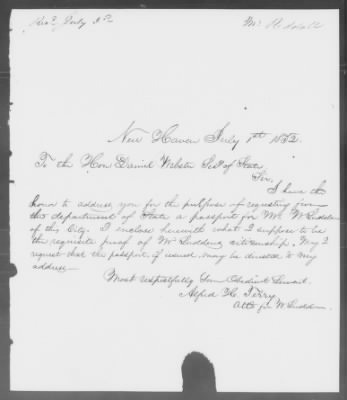 Rec'd July 2d
New Haven July 1st 1852.
To the Hon Daniel Webster Sec'y of State
Sir,
I have the
honor to address you for the purpose of requesting from
the department of State a passport for Wm W Ludden
of this City. I inclose herewith what I suppose to be
the requisite proof of Mr Luddens citizenship. May I
request that the passport, if issued, may be directed to my
address—
Most respectfully Your Obedient Servant.
Alfred H. Terry.
Atty for W. Ludden.